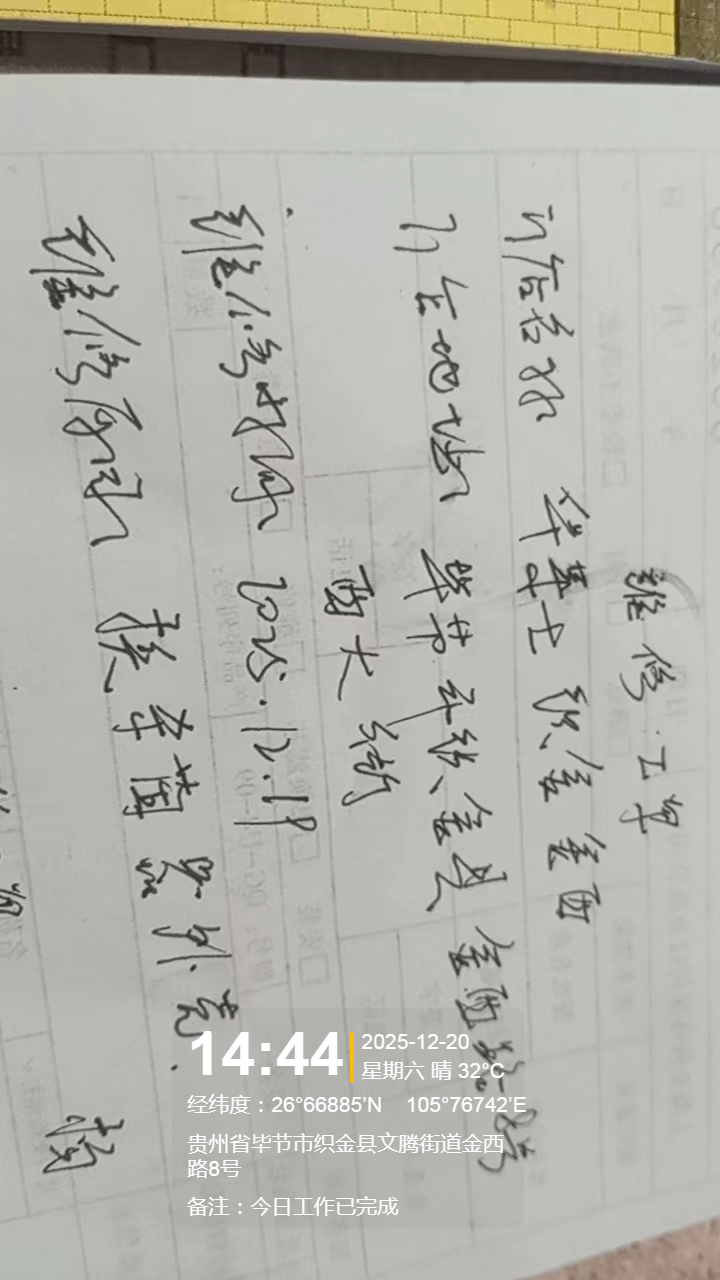 维修工单
门店名称 华莱士织金金西
门店地址 毕节市织金县金西
西大街
维修时间 2025.12.19
维修内容
外壳.
14:44
2025-12-20
星期六 晴 32°C
经纬度：26°66885'N 105°76742'E
贵州省毕节市织金县文腾街道金西
路8号
备注：今日工作已完成